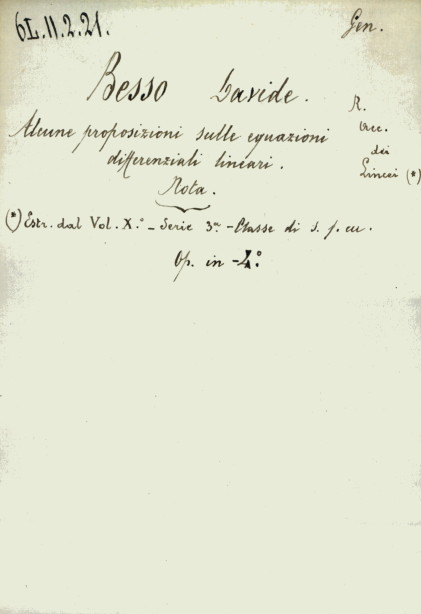 6L.11.2.21.
Gen.
Besso Davide.
Alcune proposizioni sulle equazioni
differenziali lineari.
Nota.
R.
Acc.
dei
Lincei (*)
(*) Estr. dal Vol. X.° - Serie 3ª. - Classe di s. f. ecc.
Op. in -4.°